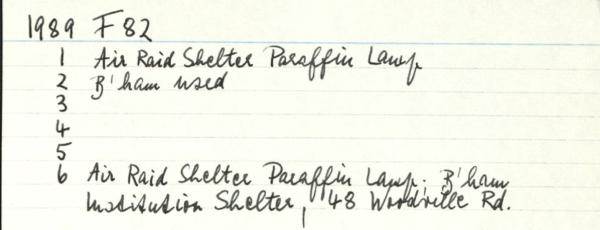 1989 F 82
1 Air Raid Shelter Paraffin Lamp
2 B'ham used
3
4
5
6 Air Raid Shelter Paraffin Lamp; B'ham
Institution Shelter, 48 Woodville Rd.